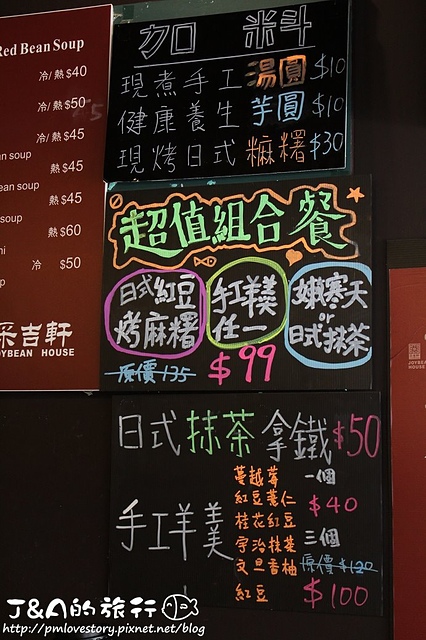 Red Bean Soup
冷/熱 $40
冷/熱 $50
冷/熱 $45
an soup
熱 $45
ean soup
熱 $45
soup
熱 $60
冷 $50
采吉軒
JOYBEAN HOUSE
加 料
現煮手工湯圓 $10
健康養生芋圓 $10
現烤日式麻糬 $30
超值組合餐
日式紅豆
烤麻糬
手工羊羹
任一
娥寒天
or
日式抹茶
原價135
$99
日式抹茶拿鐵 $50
手工羊羹
蔓越莓
紅豆薏仁
桂花紅豆
宇治抹茶
文旦香柚
紅豆
一個
$40
三個
原價$120
$100
J&A的旅行
http://pmlovestory.pixnet.net/blog